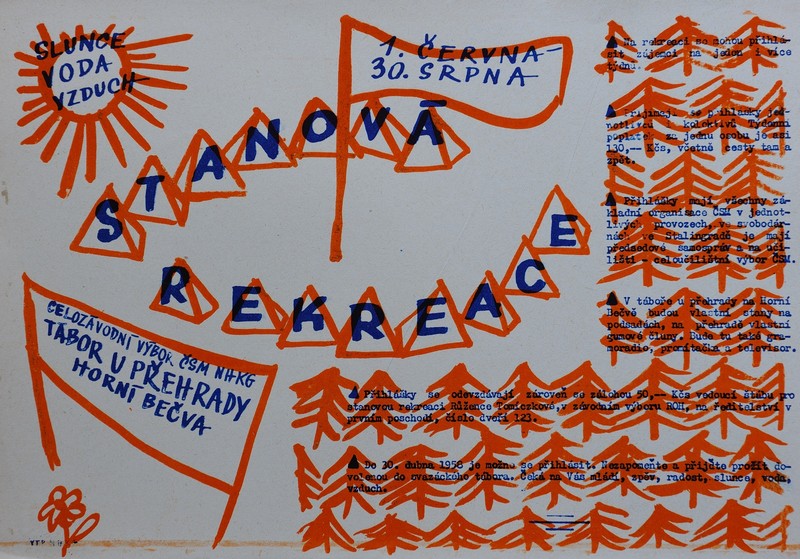 SLUNCE
VODA
VZDUCH
1. ČERVNA -
30. SRPNA
STANOVÁ
REKREACE
CELOZÁVODNÍ VÝBOR ČSM NHKG
TÁBOR U PŘEHRADY
HORNÍ BEČVA
Na rekreaci se mohou přihlá-
sit zájemci na jeden i více
týdnů.
Přijímají se přihlášky jed-
notlivců i kolektivů Týdenní
poplatek za jednu osobu je asi
130,-- Kčs, včetně cesty tam a
zpět.
Přihlášky mají všechny zá-
kladní organizace ČSM v jednot-
livých provozech, ve svobodár-
nách ve Stalingradě je mají
předsedové samospráv a na uči-
lišti - celoučilištní výbor ČSM.
V táboře u přehrady na Horní
Bečvě budou vlastní stany na
podsadách, na přehradě vlastní
gumové čluny. Bude tu také gra-
moradio, promítačka a televisor.
Přihlášky se odevzdávají zároveň se zálohou 50,-- Kčs vedoucí štábu pro
stanovou rekreaci Růžence Tomiczkové, v závodním výboru ROH, na ředitelství v
prvním poschodí, číslo dveří 123.
Do 30. dubna 1958 je možno se přihlásit. Nezapomeňte a přijďte prožít do-
volenou do svazáckého tábora. Čeká na Vás mládí, zpěv, radost, slunce, voda,
vzduch.